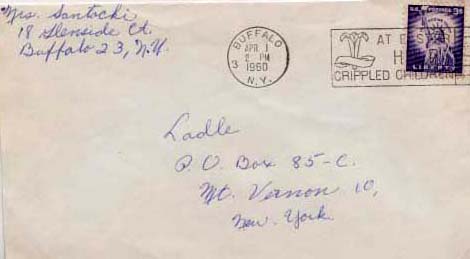 Mrs. Santocki
18 Glenside Ct.
Buffalo 23, N.Y.
BUFFALO
3
APR 1
2 PM
1960
N.Y.
AT EASTER
H
CRIPPLED CHILDREN
U.S. POSTAGE 3¢
LIBERTY
Ladle
P.O. Box 85-C.
Mt. Vernon 10,
New York